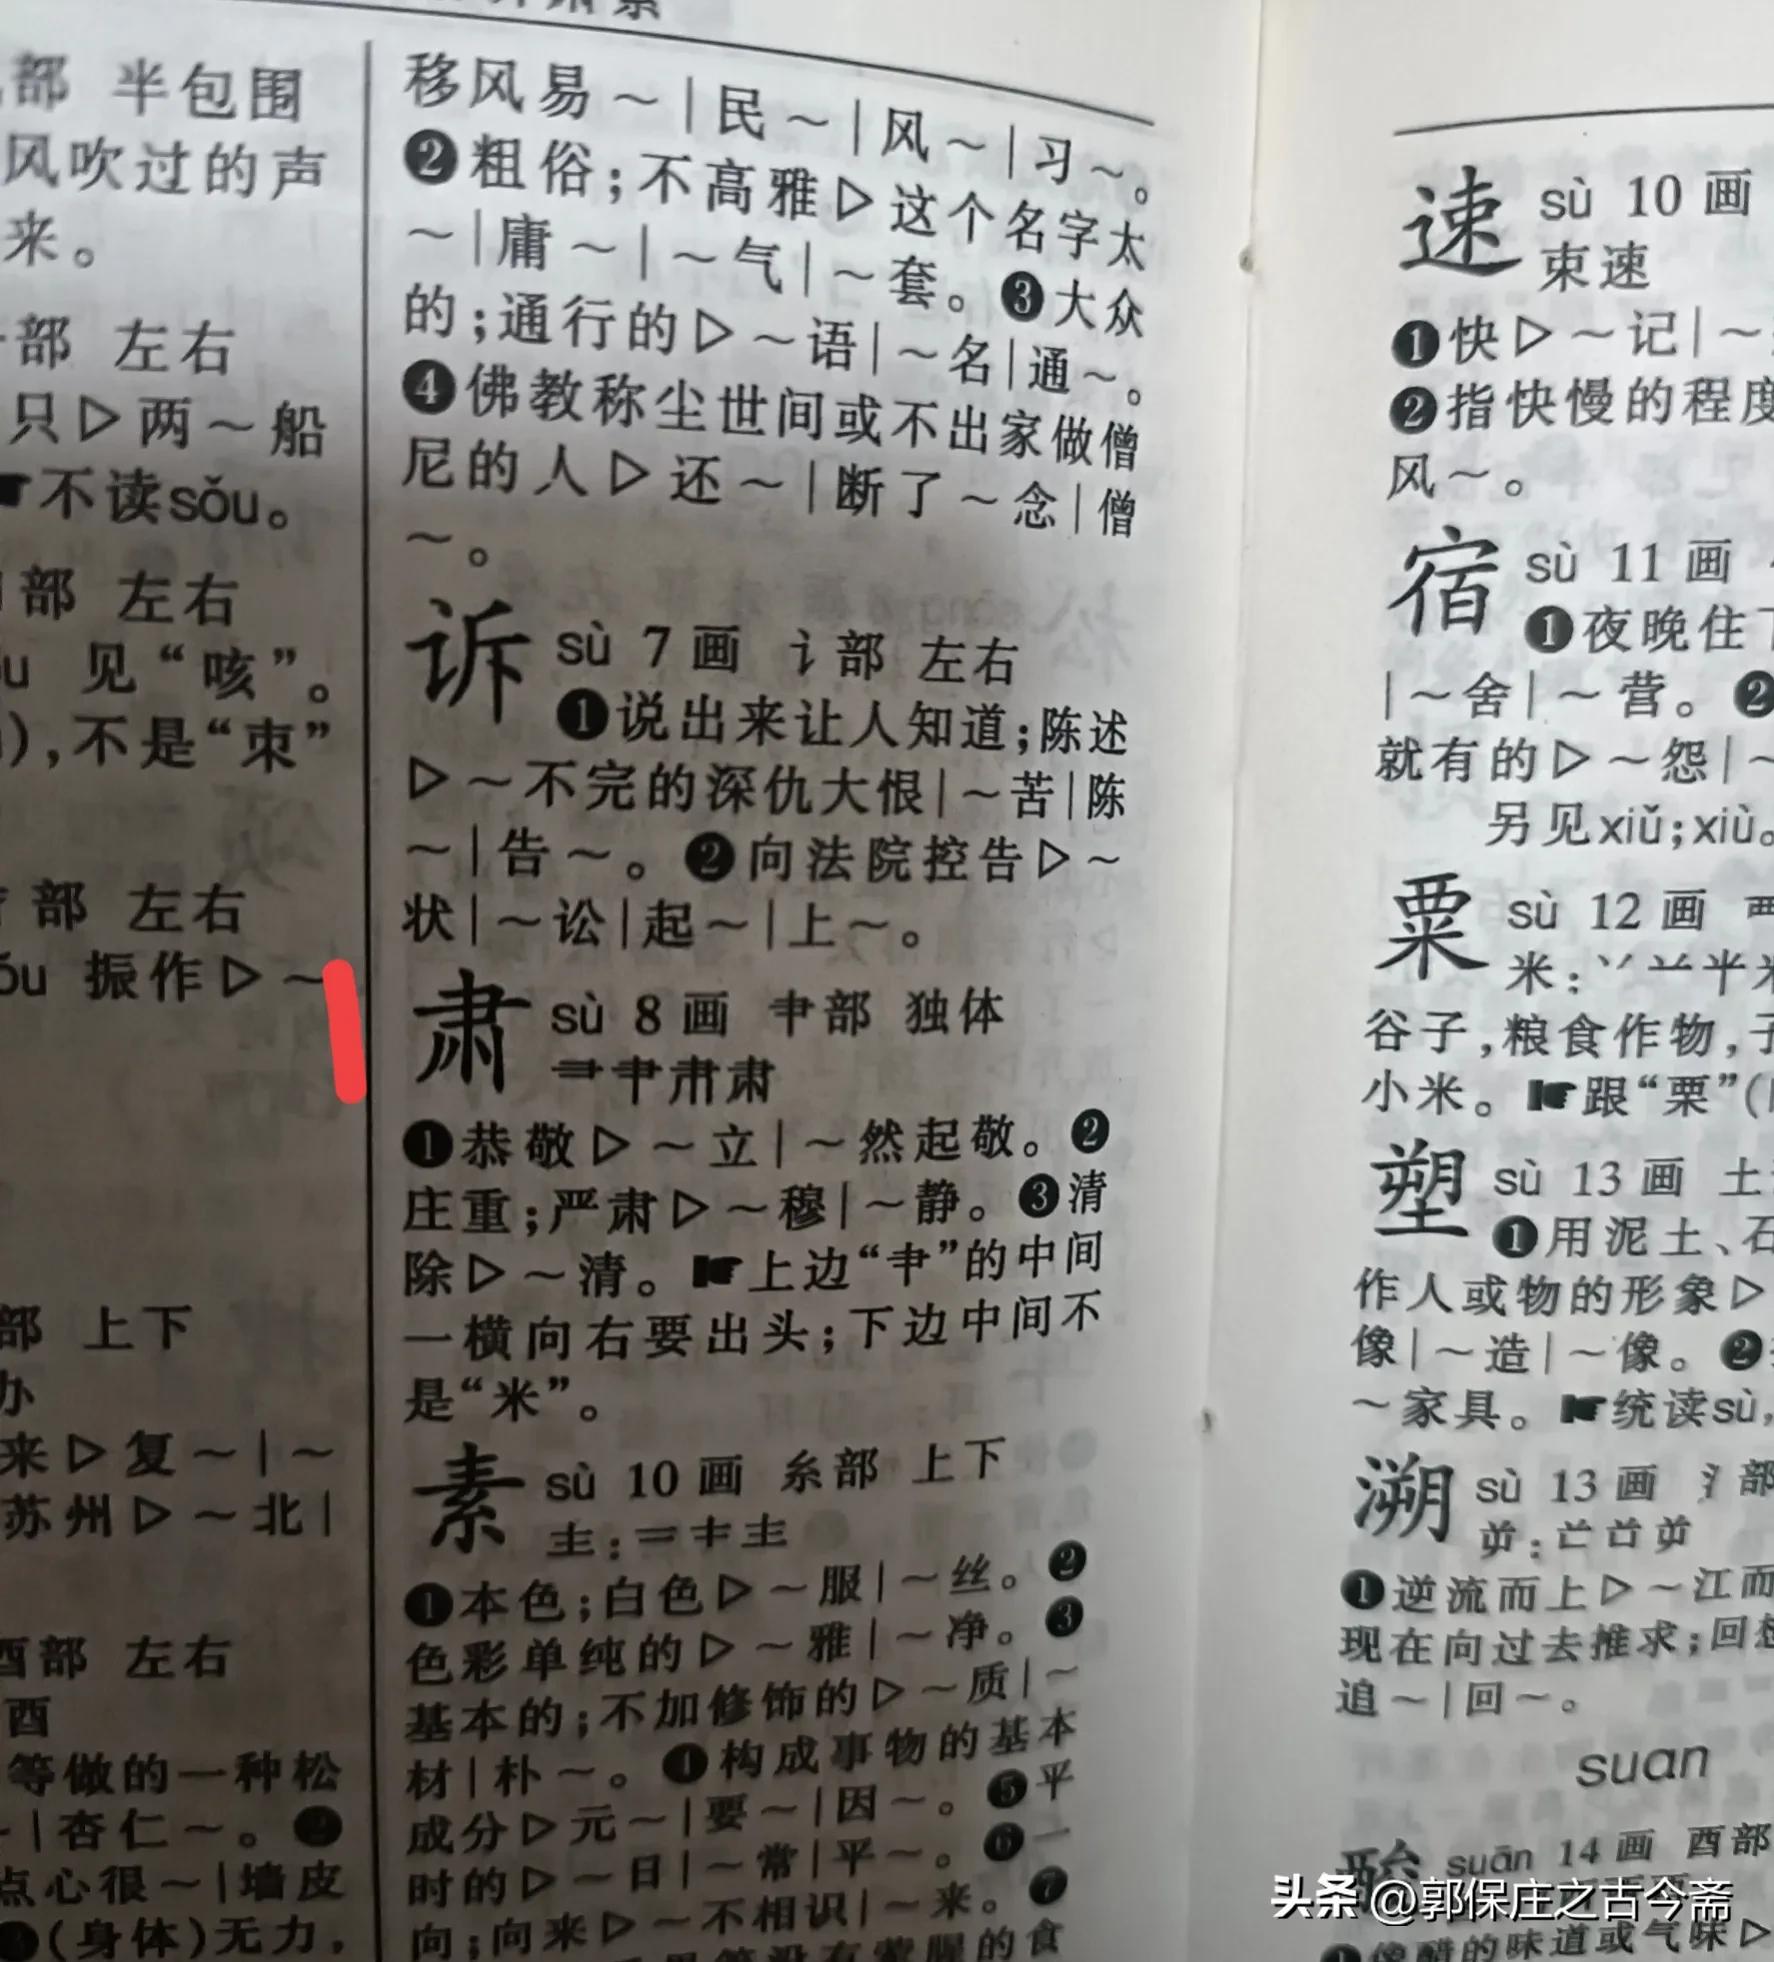 部 半包围
风吹过的声
来。
部 左右
只▷两～船
☛不读sǒu。
部 左右
见“咳”。
),不是“朿”
部 左右
ǒu 振作▷～
部 上下
来▷复～|～
苏州▷～北|
酉部 左右
酉
等做的一种松
|杏仁～。❷
点心很～|墙皮
❸(身体)无力,
移风易～|民～|风～|习～。
❷粗俗;不高雅▷这个名字太
～|庸～|～气|～套。❸大众
的;通行的▷～语|～名|通～。
❹佛教称尘世间或不出家做僧
尼的人▷还～|断了～念|僧
～。
诉 sù 7画 讠部 左右
❶说出来让人知道;陈述
▷～不完的深仇大恨|～苦|陈
～|告～。❷向法院控告▷～
状|～讼|起～|上～。
肃 sù 8画 肀部 独体
肀肃
❶恭敬▷～立|～然起敬。❷
庄重;严肃▷～穆|～静。❸清
除▷～清。☛上边“肀”的中间
一横向右要出头;下边中间不
是“米”。
素 sù 10画 糸部 上下
龶:二キ龶
❶本色;白色▷～服|～丝。❷
色彩单纯的▷～雅|～净。❸
基本的;不加修饰的▷～质|～
材|朴～。❹构成事物的基本
成分▷元～|要～|因～。❺平
时的▷～日|～常|平～。❻一
向;向来▷～不相识|～来。❼
的食
速 sù 10画
束速
❶快▷～记|～
❷指快慢的程度
风～。
宿 sù 11画
❶夜晚住下
|～舍|～营。❷
就有的▷～怨|～
另见xiǔ;xiù。
粟 sù 12画 覀
米:丷䒑半米
谷子,粮食作物,子
小米。☛跟“栗”(
塑 sù 13画 土
❶用泥土、石
作人或物的形象▷
像|～造|～像。❷
～家具。☛统读sù,
溯 sù 13画 氵部
屰:
❶逆流而上▷～江而
现在向过去推求;回想
追～|回～。
suan
酸 suān 14画 酉部
❶像醋的味道或气味▷
头条 @郭保庄之古今斋